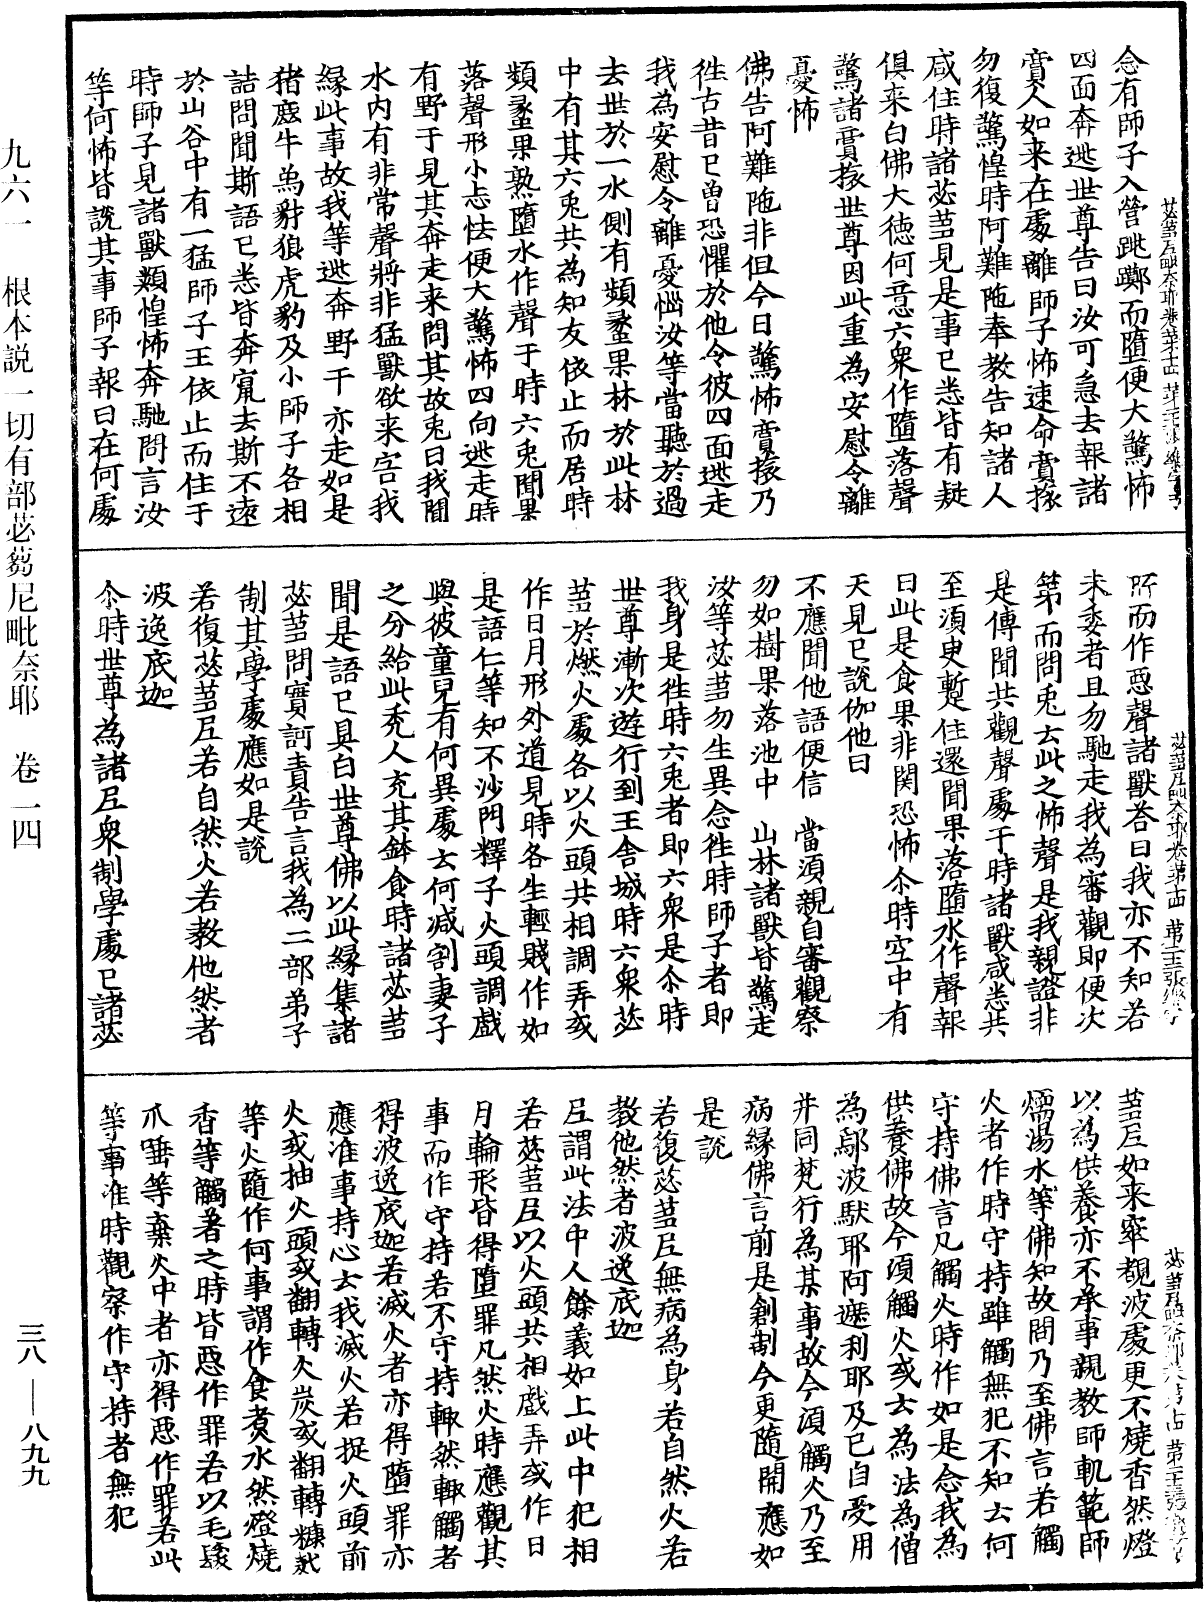 念有師子入營跳躑而墮便大驚怖
四面奔逃世尊告曰汝可急去報諸
賣人如来在處離師子怖速命賣㨿
勿復驚惶時阿難陁奉教告知諸人
咸住時諸苾芻見是事已悉皆有疑
俱来白佛大德何意六衆作墮落聲
驚諸賣㨿世尊因此重為安慰令離
憂怖
佛告阿難陁非但今日驚怖賣㨿乃
徃古昔已曾恐懼於他令彼四面逃走
我為安慰令離憂惱汝等當聽於過
去世於一水側有頻䗍果林於此林
中有其六兎共為知友依止而居時
頻䗍果熟墮水作聲于時六兎聞果
落聲形小志怯便大驚怖四向逃走時
有野干見其奔走来問其故兎曰我聞
水内有非常聲將非猛獸欲来害我
緣此事故我等逃奔野干亦走如是
猪鹿牛㺉豺狼虎豹及小師子各相
詰問聞斯語已悉皆奔竄去斯不遠
於山谷中有一猛師子王依止而住于
時師子見諸獸類惶怖奔馳問言汝
等何怖皆說其事師子報曰在何處
所而作惡聲諸獸荅曰我亦不知若
未委者且勿馳走我為審觀即便次
第而問兎云此之怖聲是我親證非
是傳聞共觀聲處于時諸獸咸悉共
至須臾暫住還聞果落墮水作聲報
曰此是食果非関恐怖尒時空中有
天見已說伽他曰
不應聞他語便信　當須親自審觀察
勿如樹果落池中　山林諸獸皆驚走
汝等苾芻勿生異念徃時師子者即
我身是徃時六兎者即六衆是尒時
世尊漸次遊行到王舍城時六衆苾
芻於燃火處各以火頭共相調弄或
作日月形外道見時各生輕賤作如
是語仁等知不沙門釋子火頭調戲
與彼童兒有何異處云何减割妻子
之分給此禿人充其鉢食時諸苾芻
聞是語已具白世尊佛以此緣集諸
苾芻問實訶責告言我為二部弟子
制其學處應如是說
若復苾芻尼若自然火若教他然者
波逸底迦
尒時世尊為諸尼衆制學處已諸苾
芻尼如来窣覩波處更不燒香然燈
以為供養亦不承事親教師軌範師
煗湯水等佛知故問乃至佛言若觸
火者作時守持雖觸無犯不知云何
守持佛言凡觸火時作如是念我為
供養佛故今須觸火或云為法為僧
為鄔波馱耶阿遮利耶及已自受用
并同梵行為某事故今須觸火乃至
病緣佛言前是創制今更隨開應如
是說
若復苾芻尼無病為身若自然火若
教他然者波逸底迦
尼謂此法中人餘義如上此中犯相
若苾芻尼以火頭共相戲弄或作日
月輪形皆得墮罪凡然火時應觀其
事而作守持若不守持輒然輒觸者
得波逸底迦若滅火者亦得墮罪亦
應准事持心云我滅火若捉火頭前
火或抽火頭或翻轉火炭或翻轉糠麩
等火隨作何事謂作食煮水然燈燒
香等觸著之時皆惡作罪若以毛髮
爪唾等棄火中者亦得惡作罪若此
等事准時觀察作守持者無犯
九六一　根本説一切有部苾蒭尼毗奈耶　卷一四
三八——八九九